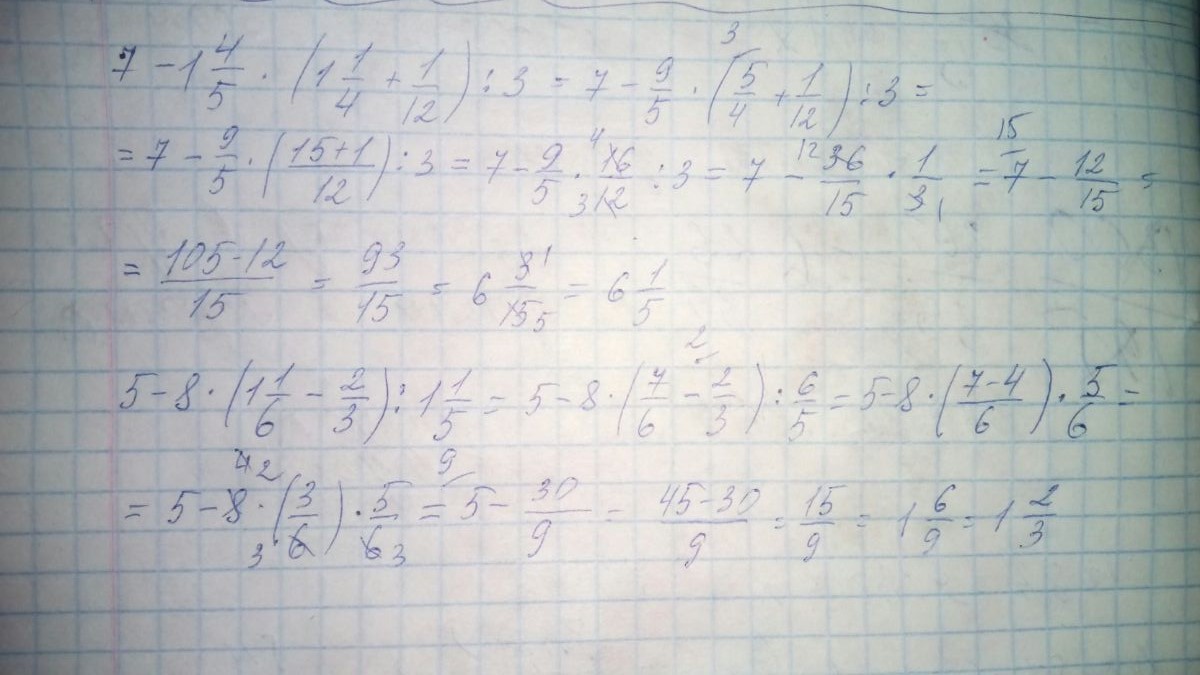 7 - 1 4/5 · (1 1/4 + 1/12) : 3 = 7 - 9/5 · (5/4 ³ + 1/12) : 3 =
= 7 - 9/5 · ((15+1)/12) : 3 = 7 - 9/5 · 4 16/3 12 : 3 = 7 - 12 36/15 · 1/3 1 = 7 15 - 12/15 =
= (105-12)/15 = 93/15 = 6 3 1/15 5 = 6 1/5
5 - 8 · (1 1/6 - 2/3) : 1 1/5 = 5 - 8 · (7/6 - 2/3 ²) : 6/5 = 5 - 8 · ((7-4)/6) · 5/6 =
= 5 - 8 4 2 · (3/3 6) · 5/6 3 = 5 9 - 30/9 = (45-30)/9 = 15/9 = 1 6/9 = 1 2/3